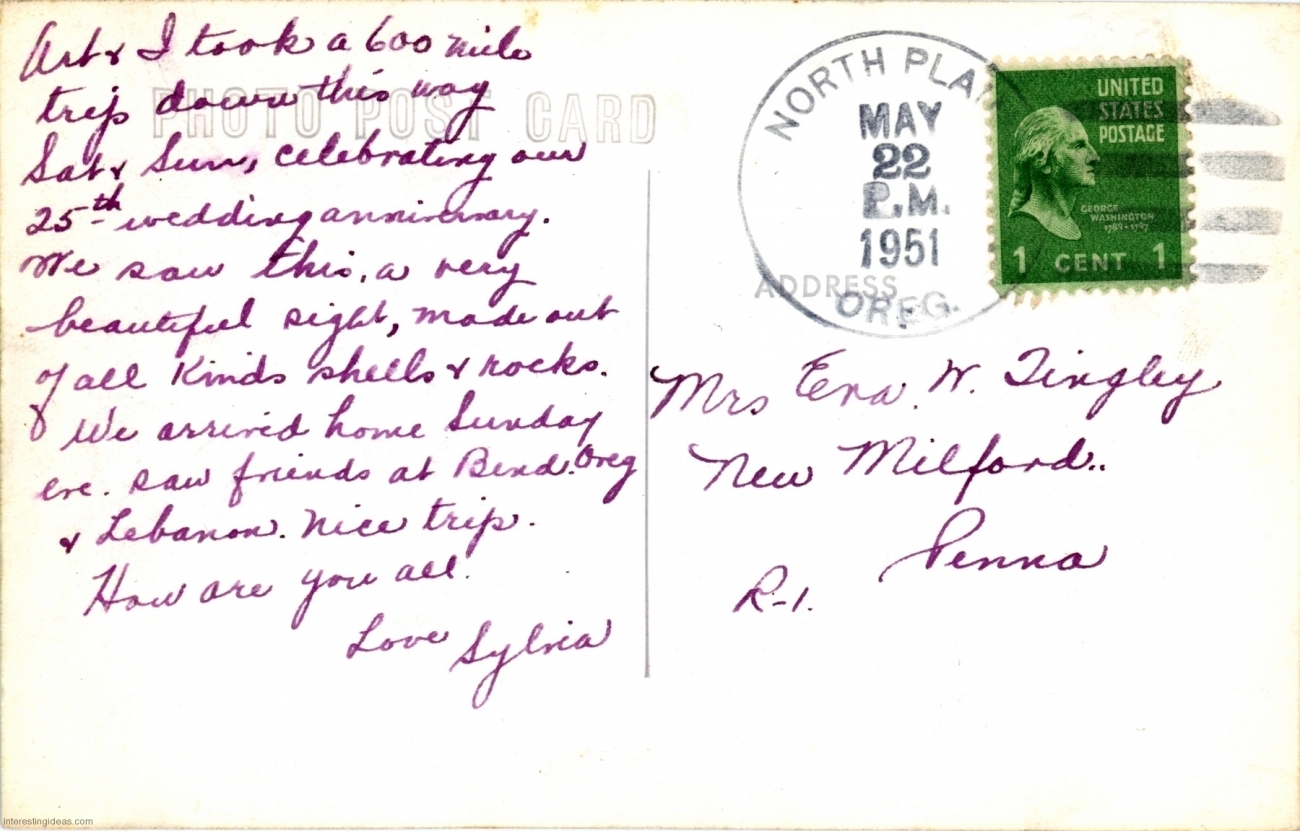 Art & I took a 600 mile
trip down this way
Sat & Sun, celebrating our
25th wedding anniversary.
We saw this, a very
beautiful sight, made out
of all kinds shells & rocks.
We arrived home Sunday
eve. saw friends at Bend. Oreg
& Lebanon. Nice trip.
How are you all.
Love Sylvia
PHOTO POST CARD
NORTH PLA
MAY
22
P.M.
1951
OREG.
UNITED
STATES
POSTAGE
GEORGE
WASHINGTON
1789-1797
1 CENT 1
ADDRESS
Mrs W. Tingley
New Milford..
Penna
R-1.
interestingideas.com